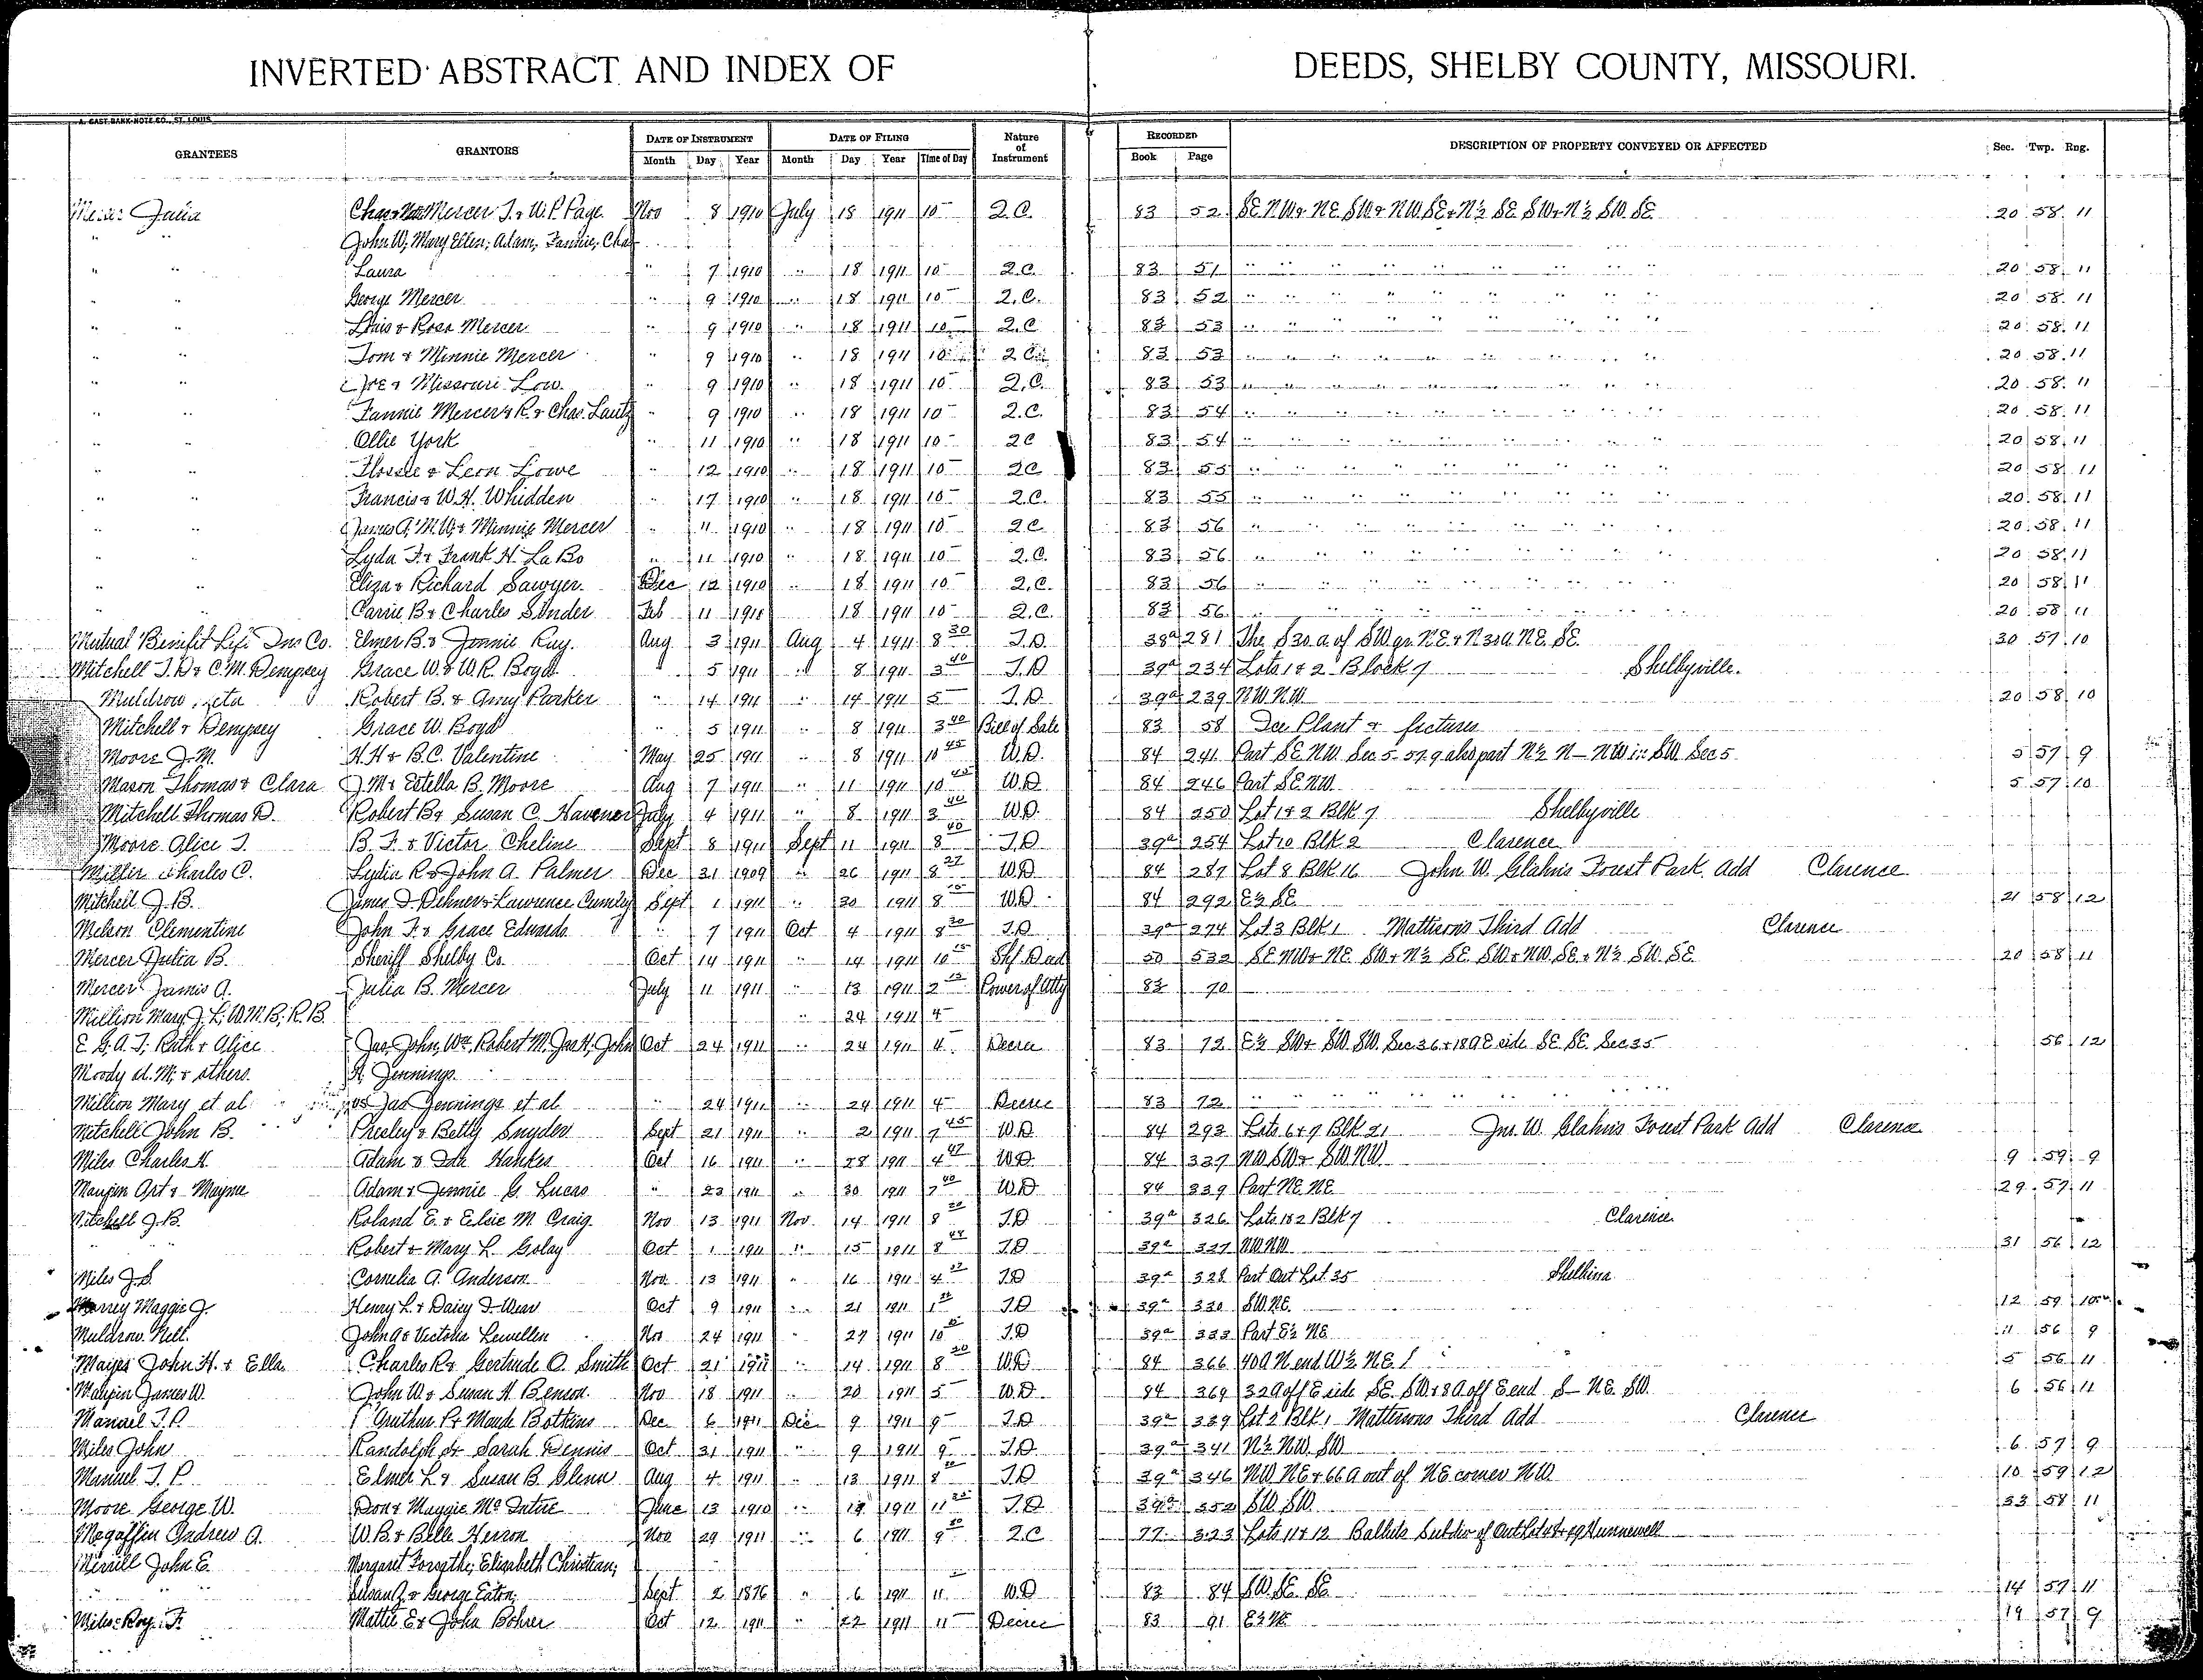 INVERTED ABSTRACT AND INDEX OF DEEDS, SHELBY COUNTY, MISSOURI.
A. GAST BANK-NOTE CO., ST. LOUIS
GRANTEES GRANTORS DATE OF INSTRUMENT DATE OF FILING Nature of Instrument RECORDED DESCRIPTION OF PROPERTY CONVEYED OR AFFECTED Sec. Twp. Rng.
Month Day Year Month Day Year Time of Day Book Page
Mercer Julia Mercer J. & W. P. Page Nov 8 1910 July 18 1911 10 – 2.C. 83 52 SE NW & NE SW & NW SE & N½ SE SW & N½ SW SE 20 58 11
" " John W; Mary Ellen; Adam; Fannie; Chas
" " Laura " 7 1910 " 18 1911 10 – 2.C. 83 51 " " " " " " " " 20 58 11
" " George Mercer " 9 1910 " 18 1911 10 – 2.C. 83 52 " " " " " " " " 20 58 11
" " Louis & Rosa Mercer " 9 1910 " 18 1911 10 – 2.C. 83 53 " " " " " " " " 20 58 11
" " Tom & Minnie Mercer " 9 1910 " 18 1911 10 – 2.C. 83 53 " " " " " " " " 20 58 11
" " Joe & Missouri Low. " 9 1910 " 18 1911 10 – 2.C. 83 53 " " " " " " " " 20 58 11
" " Fannie Mercer & R. & Chas. Lautz " 9 1910 " 18 1911 10 – 2.C. 83 54 " " " " " " " " 20 58 11
" " Ollie York " 11 1910 " 18 1911 10 – 2C 83 54 " " " " " " " " 20 58 11
" " Flossie & Leon Lowe " 12 1910 " 18 1911 10 – 2C 83 55 " " " " " " " " 20 58 11
" " Francis & W. H. Whidden " 17 1910 " 18 1911 10 – 2.C. 83 55 " " " " " " " " 20 58 11
" " James A; M. W; & Minnie Mercer " 11 1910 " 18 1911 10 – 2C 83 56 " " " " " " " " 20 58 11
" " Lyda F. & Frank H. La Bo " 11 1910 " 18 1911 10 – 2.C. 83 56 " " " " " " " " 20 58 11
" " Eliza & Richard Sawyer Dec 12 1910 " 18 1911 10 – 2.C. 83 56 " " " " " " " " 20 58 11
" " Carrie B & Charles Feb 11 1911 18 1911 10 – 2.C. 83 56 " " " " " " " " 20 58 11
Mutual Benefit Life Ins Co. Elmer B. & Jennie Ray. Aug 3 1911 Aug 4 1911 8 30 T.D. 38a 281 The S 30 a of SW qr NE & N 30 a NE SE 30 57 10
Mitchell T. D & C. M. Dempsey Grace W. & W. R. Boyd " 5 1911 " 8 1911 3 40 T.D 39a 234 Lots 1 & 2 Block 7 Shelbyville. 
Muldrow Robert B. & Amy Parker " 14 1911 " 14 1911 5 – T.D. 39a 239 NW NW 20 58 10
Mitchell & Dempsey Grace W. Boyd " 5 1911 " 8 1911 3 40 Bill of Sale 83 58 Ice Plant & fictures
Moore J. M. H. H & B. C. Valentine May 25 1911 " 8 1911 10 45 W.D. 84 241 Part SE NW Sec 5-57.9 also part N½ N – NW in SW Sec 5 5 57 9
Mason Thomas & Clara J. M & Estella B. Moore Aug 7 1911 " 11 1911 10 45 W.D 84 246 Part SE NW. 5 57 10
Mitchell Thomas D. Robert B & Susan C. Havener July 4 1911 " 8 1911 3 40 W.D. 84 250 Lot 1 & 2 Blk 7 Shelbyville
Moore Alice T. B. F. & Victor Cheline Sept 8 1911 Sept 11 1911 8 40 T.D 39a 254 Lot 10 Blk 2 Clarence
Miller Charles C. Lydia R & John A. Palmer Dec 31 1909 " 26 1911 8 27 W.D 84 287 Lot 8 Blk 16 John W. Glahns Forest Park Add Clarence
Mitchell J. B. James D. Dehner & Lawrence Cundy Sept 1 1911 " 30 1911 8 W.D. 84 292 E½ SE 21 58 12
Melson Clementine John F. & Grace Edwards " 7 1911 Oct 4 1911 8 30 T.D 39a 274 Lot 3 Blk 1 Mattisons Third Add Clarence
Mercer Julia B. Sheriff Shelby Co. Oct 14 1911 " 14 1911 10 15 Shf Deed 50 532 SE NW & NE SW & N½ SE SW & NW SE & N½ SW SE 20 58 11
Mercer James A. Julia B. Mercer July 11 1911 " 13 1911 2 15 Power of Atty 83 70
Million Mary J. L; W. M. B; R. B. " 24 1911 4 –
E. G. A. T; Ruth & Alice Jas, John, Wm, Robert M. Jas H; John Oct 24 1911 " 24 1911 4 – Decree 83 72 E½ SW & SW SW Sec 36 & 18 a E side SE SE Sec 35 56 12
Moody M; & others. A. Jennings
Million Mary et al vs Jas Jennings et al " 24 1911 " 24 1911 4 – Decree 83 72 " " " " "
Mitchell John B. Presley & Betty Snyder Sept 21 1911 " 2 1911 7 45 W.D. 84 293 Lots 6 & 7 Blk 21 Jno. W. Glahns Forest Park Add Clarence
Miles Charles H. Adam & Ida Hankes Oct 16 1911 " 28 1911 4 47 W.D 84 337 NW SW & SW NW 9 59 9
Maupin Art & Mayme Adam & Jennie G. Lucas " 23 1911 " 30 1911 7 40 W.D 84 339 Part NE NE 29 57 11
Mitchell J. B. Roland E. & Elsie M. Craig. Nov 13 1911 Nov. 14 1911 8 20 T.D 39a 326 Lots 1 & 2 Blk 7 Clarence
Robert & Mary L. Golay Oct 1 1911 " 15 1911 8 T.D 39a 327 NW NW 31 56 12
Miles J. S. Cornelia A. Anderson Nov. 13 1911 " 16 1911 4 T.D 39a 328 Part Out Lot 35 Shelbina
Maggie J. Henry L. & Daicy D. Wear Oct 9 1911 " 21 1911 1 T.D 39a 330 SW NE 12 59 10
Muldrow Nell. John A & Victoria Lewellen Nov 24 1911 " 27 1911 10 T.D 39a 333 Part E½ NE 11 56 9
Mayes John H. & Ella Charles R & Gertrude O. Smith Oct 21 1911 " 14 1911 8 20 W.D 84 366 40 a N end W½ NE 5 56 11
Maupin James W. John W. & Susan H. Benson. Nov 18 1911 " 20 1911 5 – W.D. 84 369 32 a off E side SE SW & 8 a off E end S – NE SW. 6 56 11
Manuel T. P. P & Maude Botkins Dec 6 1911 Dec 9 1911 9 – T.D 39a 339 Lot 2 Blk 1 Mattisons Third Add Clarence
Miles John Randolph & Sarah Dennis Oct 31 1911 " 9 1911 9 – T.D. 39a 341 N½ NW SW 6 57 9
Manuel T. P. Elmer L. & Susan B. Glenn Aug 4 1911 " 13 1911 8 T.D 39a 346 NW NE & 66 a out of NE corner NW 10 59 12
Moore George W. Don & Maggie McIntire June 13 1910 " 1911 11 T.D. 39a 352 SW SW 33 58 11
Megaffin Andrew A. W. B. & Belle Herron Nov 29 1911 " 6 1911 9 2.C 77 323 Lots 11 & 12 Subdiv of Hunnewell
Merrill John E. Margaret Forsythe; Elizabeth Christian;
" Susan & George Eaton Sept 2 1876 " 6 1911 11 – W.D 83 84 SW SE SE 14 57 11
Miles Roy F. Mattie E & John Bohrer Oct 12 1911 " 22 1911 11 – Decree 83 91 E½ NE 19 57 9